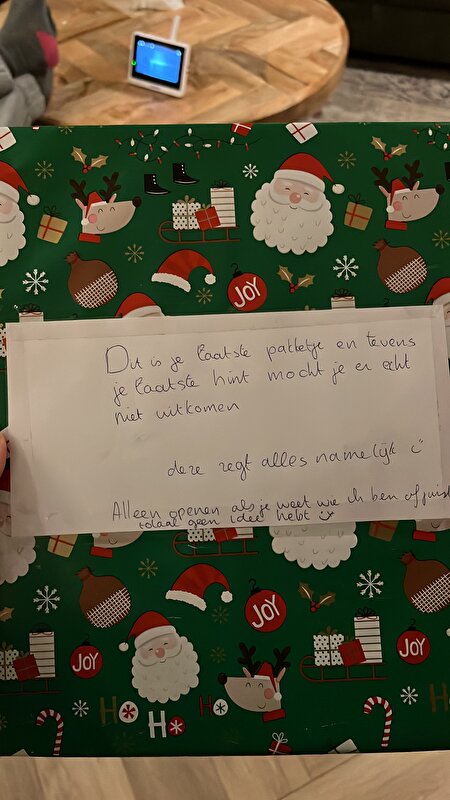 JOY
Dit is je laatste pakketje en tevens
je laatste hint mocht je er echt
niet uitkomen
deze zegt alles namelijk
Alleen openen als je weet wie ik ben of juist
totaal geen idee hebt
JOY
JOY
JOY
HO HO HO